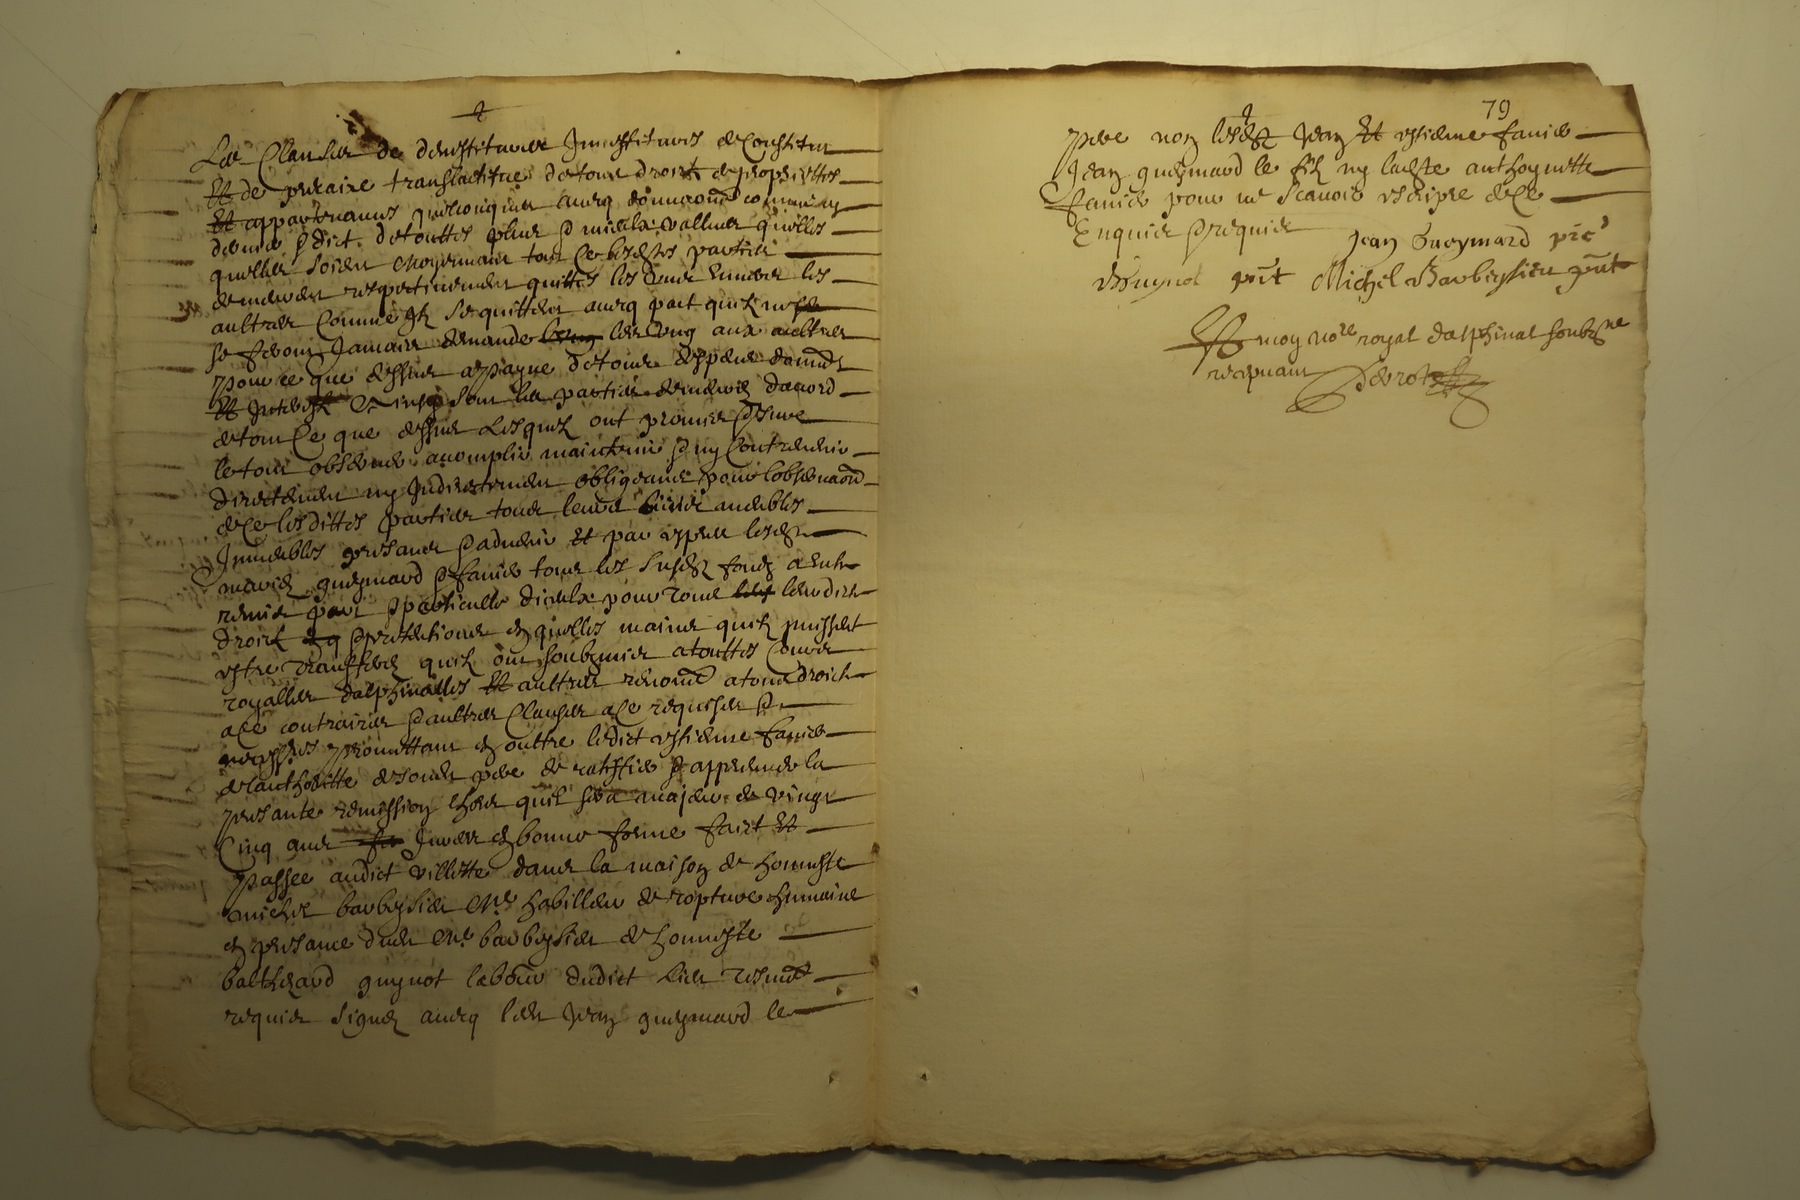 Les Clauses de devestitures Investitures de Constitut
Et de precaire translactitre de tous droits et proprietes
Et appartenances quelconques avecq donnaon̄ comme en
de touttes plus & mieulx vallues quelles
quelles soient moyennant tout ce lesdtes parties
demeurent respectivement quittes les ungs envers les
aultres Comme Ils se quittent avecq pact quilz ne
se feront Jamais demande les ung aux aultres
pour ce que dessus a payne de tous despens domāt
Et Interestz Et ainsy sont les parties demeures dacord
de tout Ce que dessus Lesquelz ont promis & Jure
le tout observer acomplir maintenir & ny Contrevenir
directement ny Indirectement obligeant pour lobservaon̄
de Ce lesdittes parties tous leurs biens meubles
Immeubles presants & advenir Et par expres lesdtz
maries gueymard & faniee tous les susdtz fondz
remis par & particulle diceulx pour
droitz & pretentions en quelles mains quilz puissent
estre transferes quilz ont soubzmis a touttes Cours
royalles dalphinalles Et aultres renonce a tous droictz
a Ce contraires & aultres Clauses a Ce requises &
necess.res promettant en oultre ledict estienne faniee
de lauthoritte de sondt pere de ratiffier & appreuver la
presante remission lhors quil sera majeur de vingt
Cinq ans Jures en bonne forme faict Et
passee audict villette dans la maison de honneste
michel barbeysieu Me habilleur de ropture humaine
en presance dudt Me barbeysieu de honneste
balthezard guynot laboūr dudict Lieu tesmoīt
requis signez avecq ledt Jean gueymard le
79
pere non lesdtz Jean Et estienne faniee
Jean gueymard le filz ny ladte anthoynette
faniee pour ne scavoir escripre de Ce
Enquis & requis
Jean Gueymard
Guynot pn̄t Michel Barbeysieu pn̄t
Et moy no.re royal dalphinal soubzne
recepvant